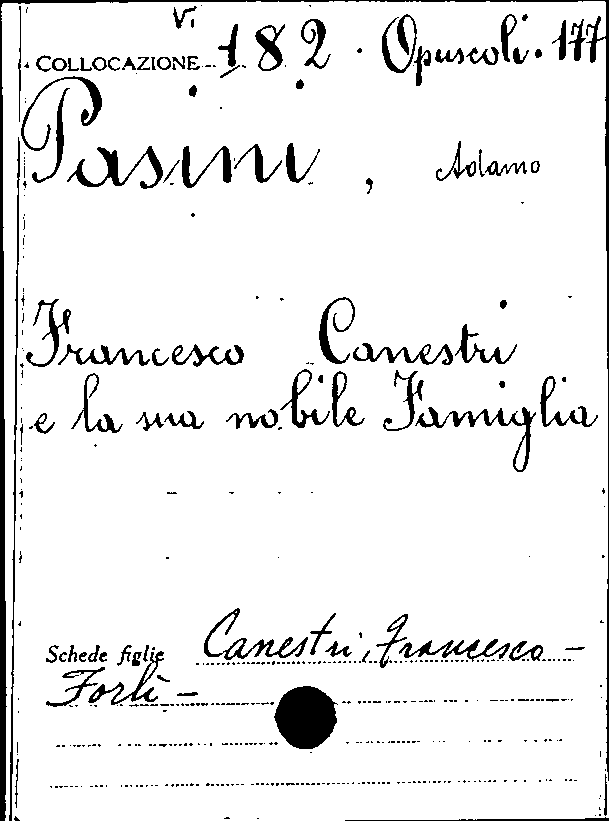 VI
COLLOCAZIONE 182. Opuscoli. 177
Pasini, Adamo
Francesco Canestri
e la sua nobile Famiglia
Schede figlie Canestri, Francesco -
Forlì -